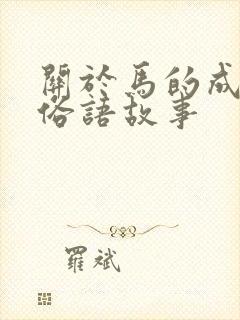 關於馬的成
俗語故事
羅斌